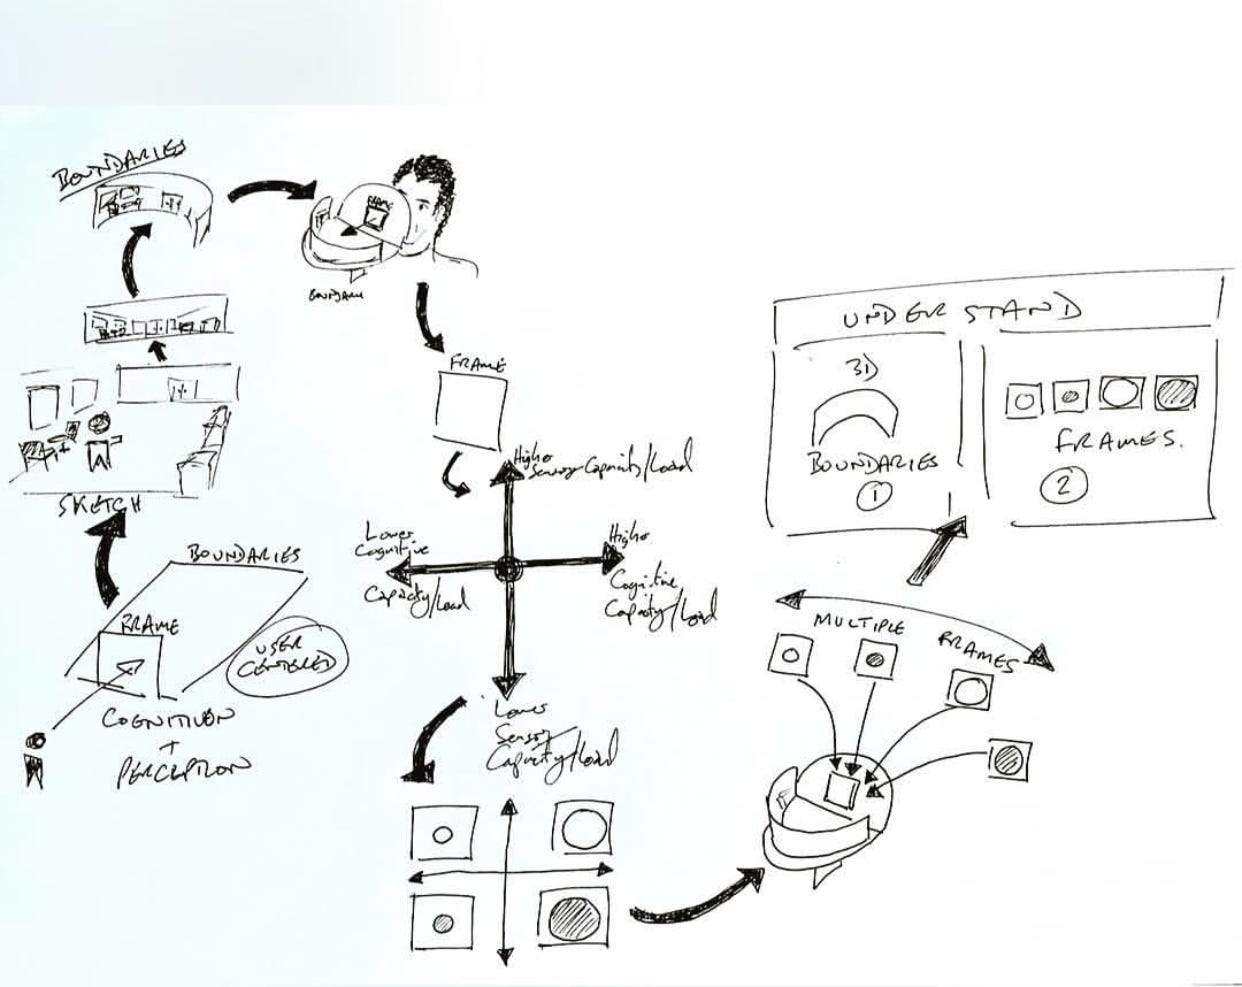 BOUNDARIES
FRAME
BOUNDARIES
FRAME
Higher
Sensory Capacity/Load
Lower
Cognitive
Capacity/Load
Higher
Cognitive
Capacity/Load
Lower
Sensory
Capacity/Load
SKETCH
BOUNDARIES
FRAME
USER
CENTERED
COGNITION
+
PERCEPTION
MULTIPLE
FRAMES
UNDERSTAND
3D
BOUNDARIES
1
FRAMES.
2